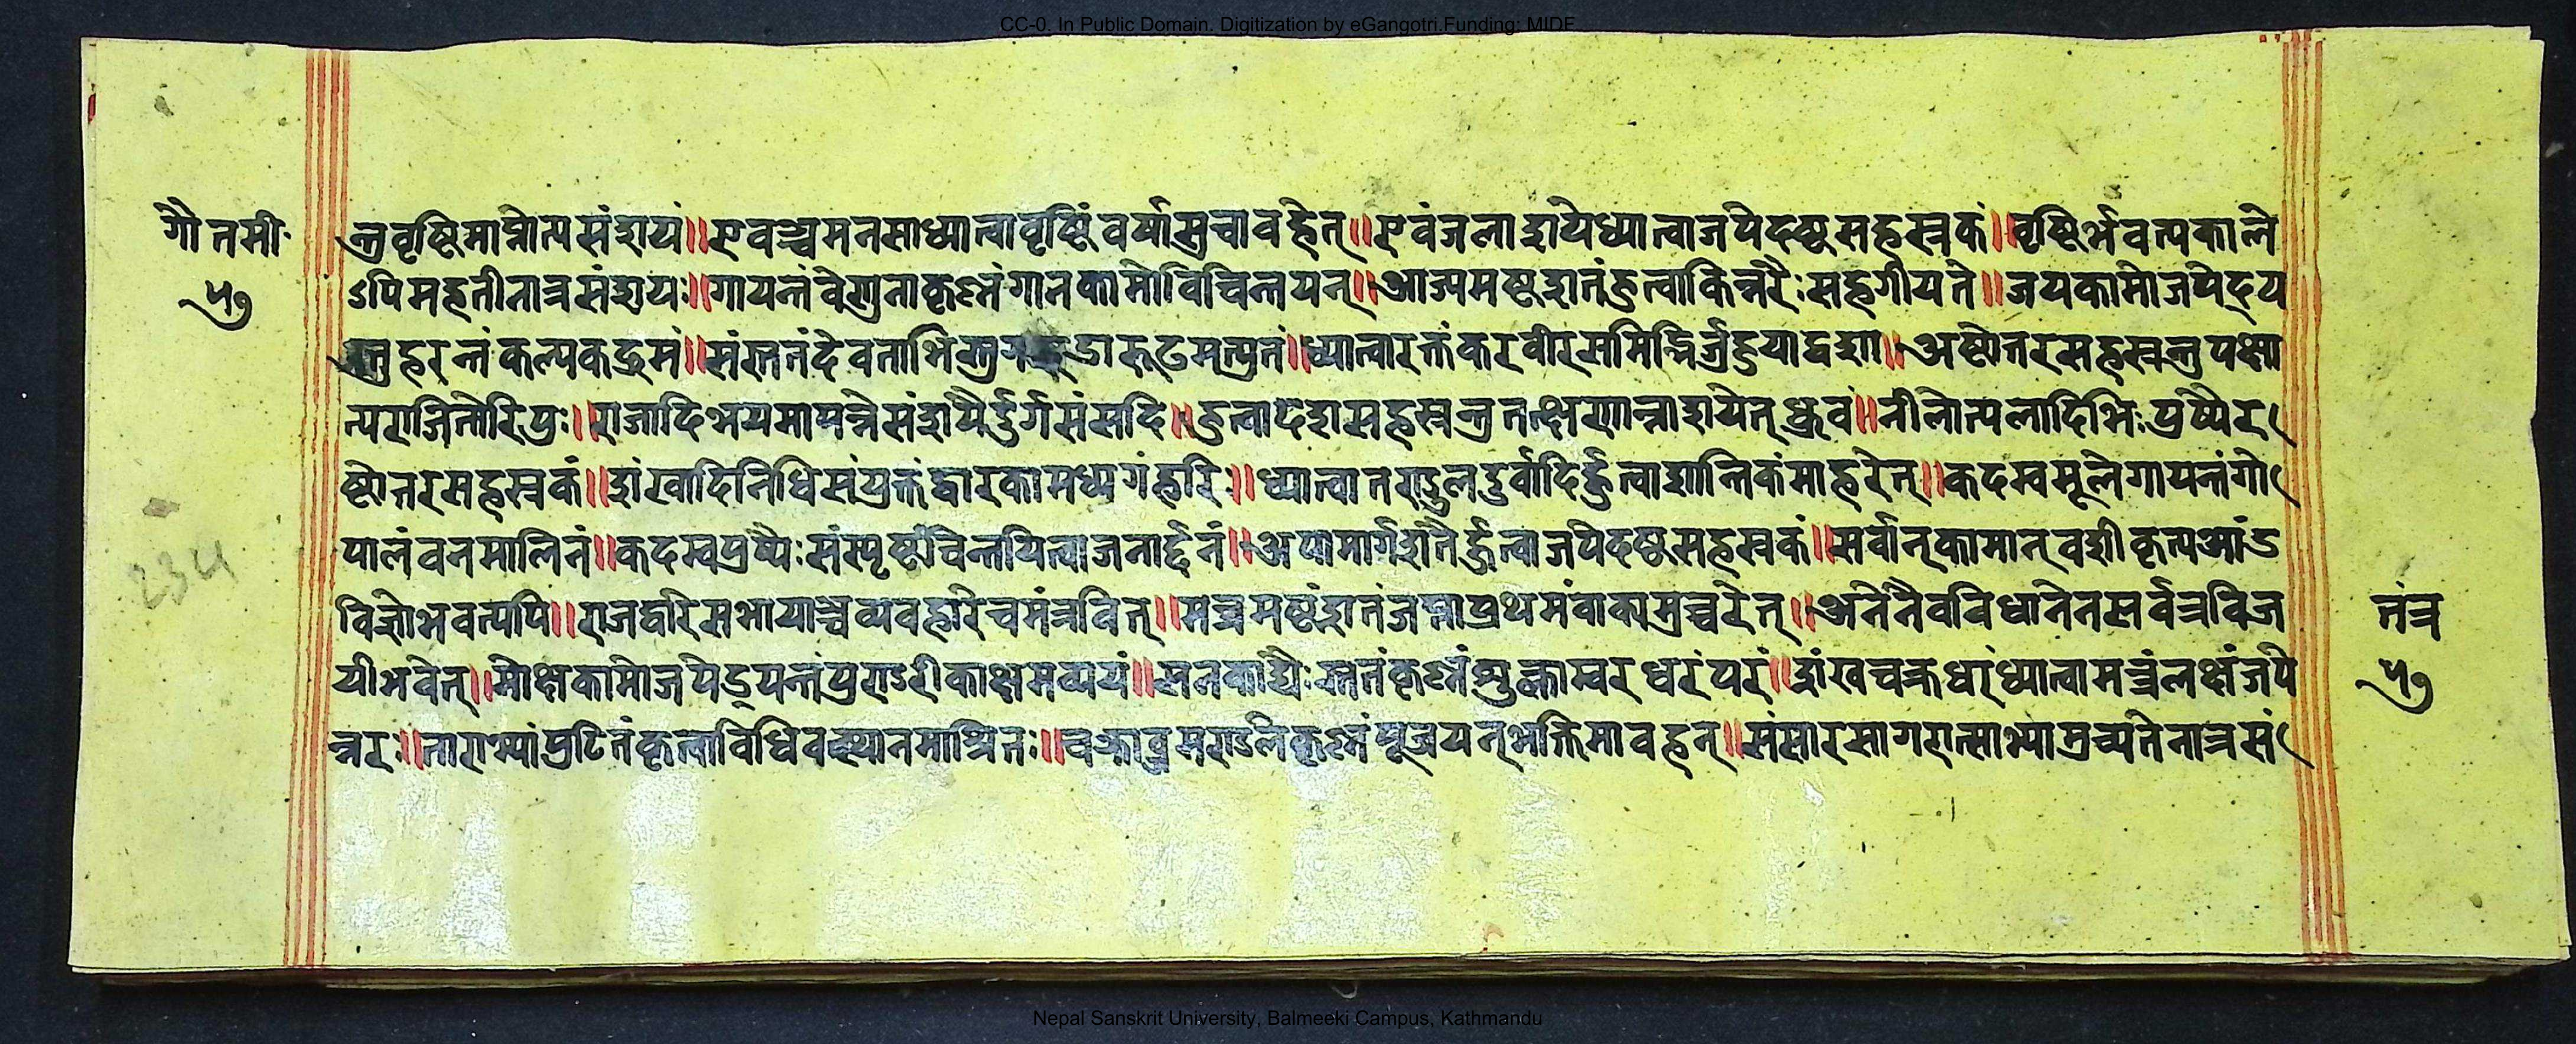 CC-0. In Public Domain. Digitization by eGangotri.Funding: MIDF
गौतमी
५७
न्त्रवृष्टिमाप्नोत्यसंशयं॥एवञ्चमनसाध्यात्वावृष्टिं चावहेत्॥एवंजलाशयेध्यात्वाजपेदष्टसहस्रकं॥वृष्टिर्भवत्यकाले
ऽपिमहतीनात्रसंशयः॥गायन्तंवेणुनाकृष्णंगानकामोविचिन्तयन्॥आज्यमष्टशतंहुत्वाकिन्नरैःसहगीयते॥जयकामोजपेद्य
स्तुहरन्तंकल्पकद्रुमं॥संस्तुतंदेवताभि ध्यात्वारक्तंकरवीरसमिद्भिर्जुहुयाद्वशा॥अष्टोत्तरसहस्रन्तुपक्षा
त्पराजितोरिपुः॥राजादिभयमापन्नेसंशयैर्दुर्गसंसदि॥हुत्वादशसहस्रन्तुतत्क्षणान्नाशयेत्ध्रुवं॥नीलोत्पलादिभिःपुष्पैर
ष्टोत्तरसहस्रकं॥शंखादिनिधिसंयुक्तंद्वारकामध्यगंहरिं॥ध्यात्वातण्डुलदुर्वादिर्हुत्वाशान्तिकंमाहरेत्॥कदम्बमूलेगायन्तंगो
पालंवनमालिनं॥कदम्बपुष्पैःसंस्पृष्टंचिन्तयित्वाजनार्द्दनं॥अपामार्गशतैर्हुत्वाजपेदष्टसहस्रकं॥सर्वान्कामान्वशीकृत्य
विज्ञोभवत्यपि॥राजद्वारेसभायाञ्चव्यवहारेचमंत्रवित्॥मन्त्रमष्टशतंजप्त्वाप्रथमंवाक्यमुच्चरेत्॥अनेनैवविधानेनसर्वत्रविज
यीभवेत्॥मोक्षकामोजपेद्यन्तंपुण्डरीकाक्षमव्ययं॥सनकाद्यैःस्तुतंकृष्णंशुक्लाम्बरधरंपरं॥शंखचक्रधरंध्यात्वामन्त्रंलक्षंजपे
न्नरः॥ताराभ्यांपुटितंकृत्वाविधिव माश्रितः॥चक्राब्जमण्डलेकृष्णंपूजयन्भक्तिमावहन्॥संसारसागरात्साभ्यामुच्यतेनात्रसं
तंत्र
५७
234
Nepal Sanskrit University, Balmeeki Campus, Kathmandu